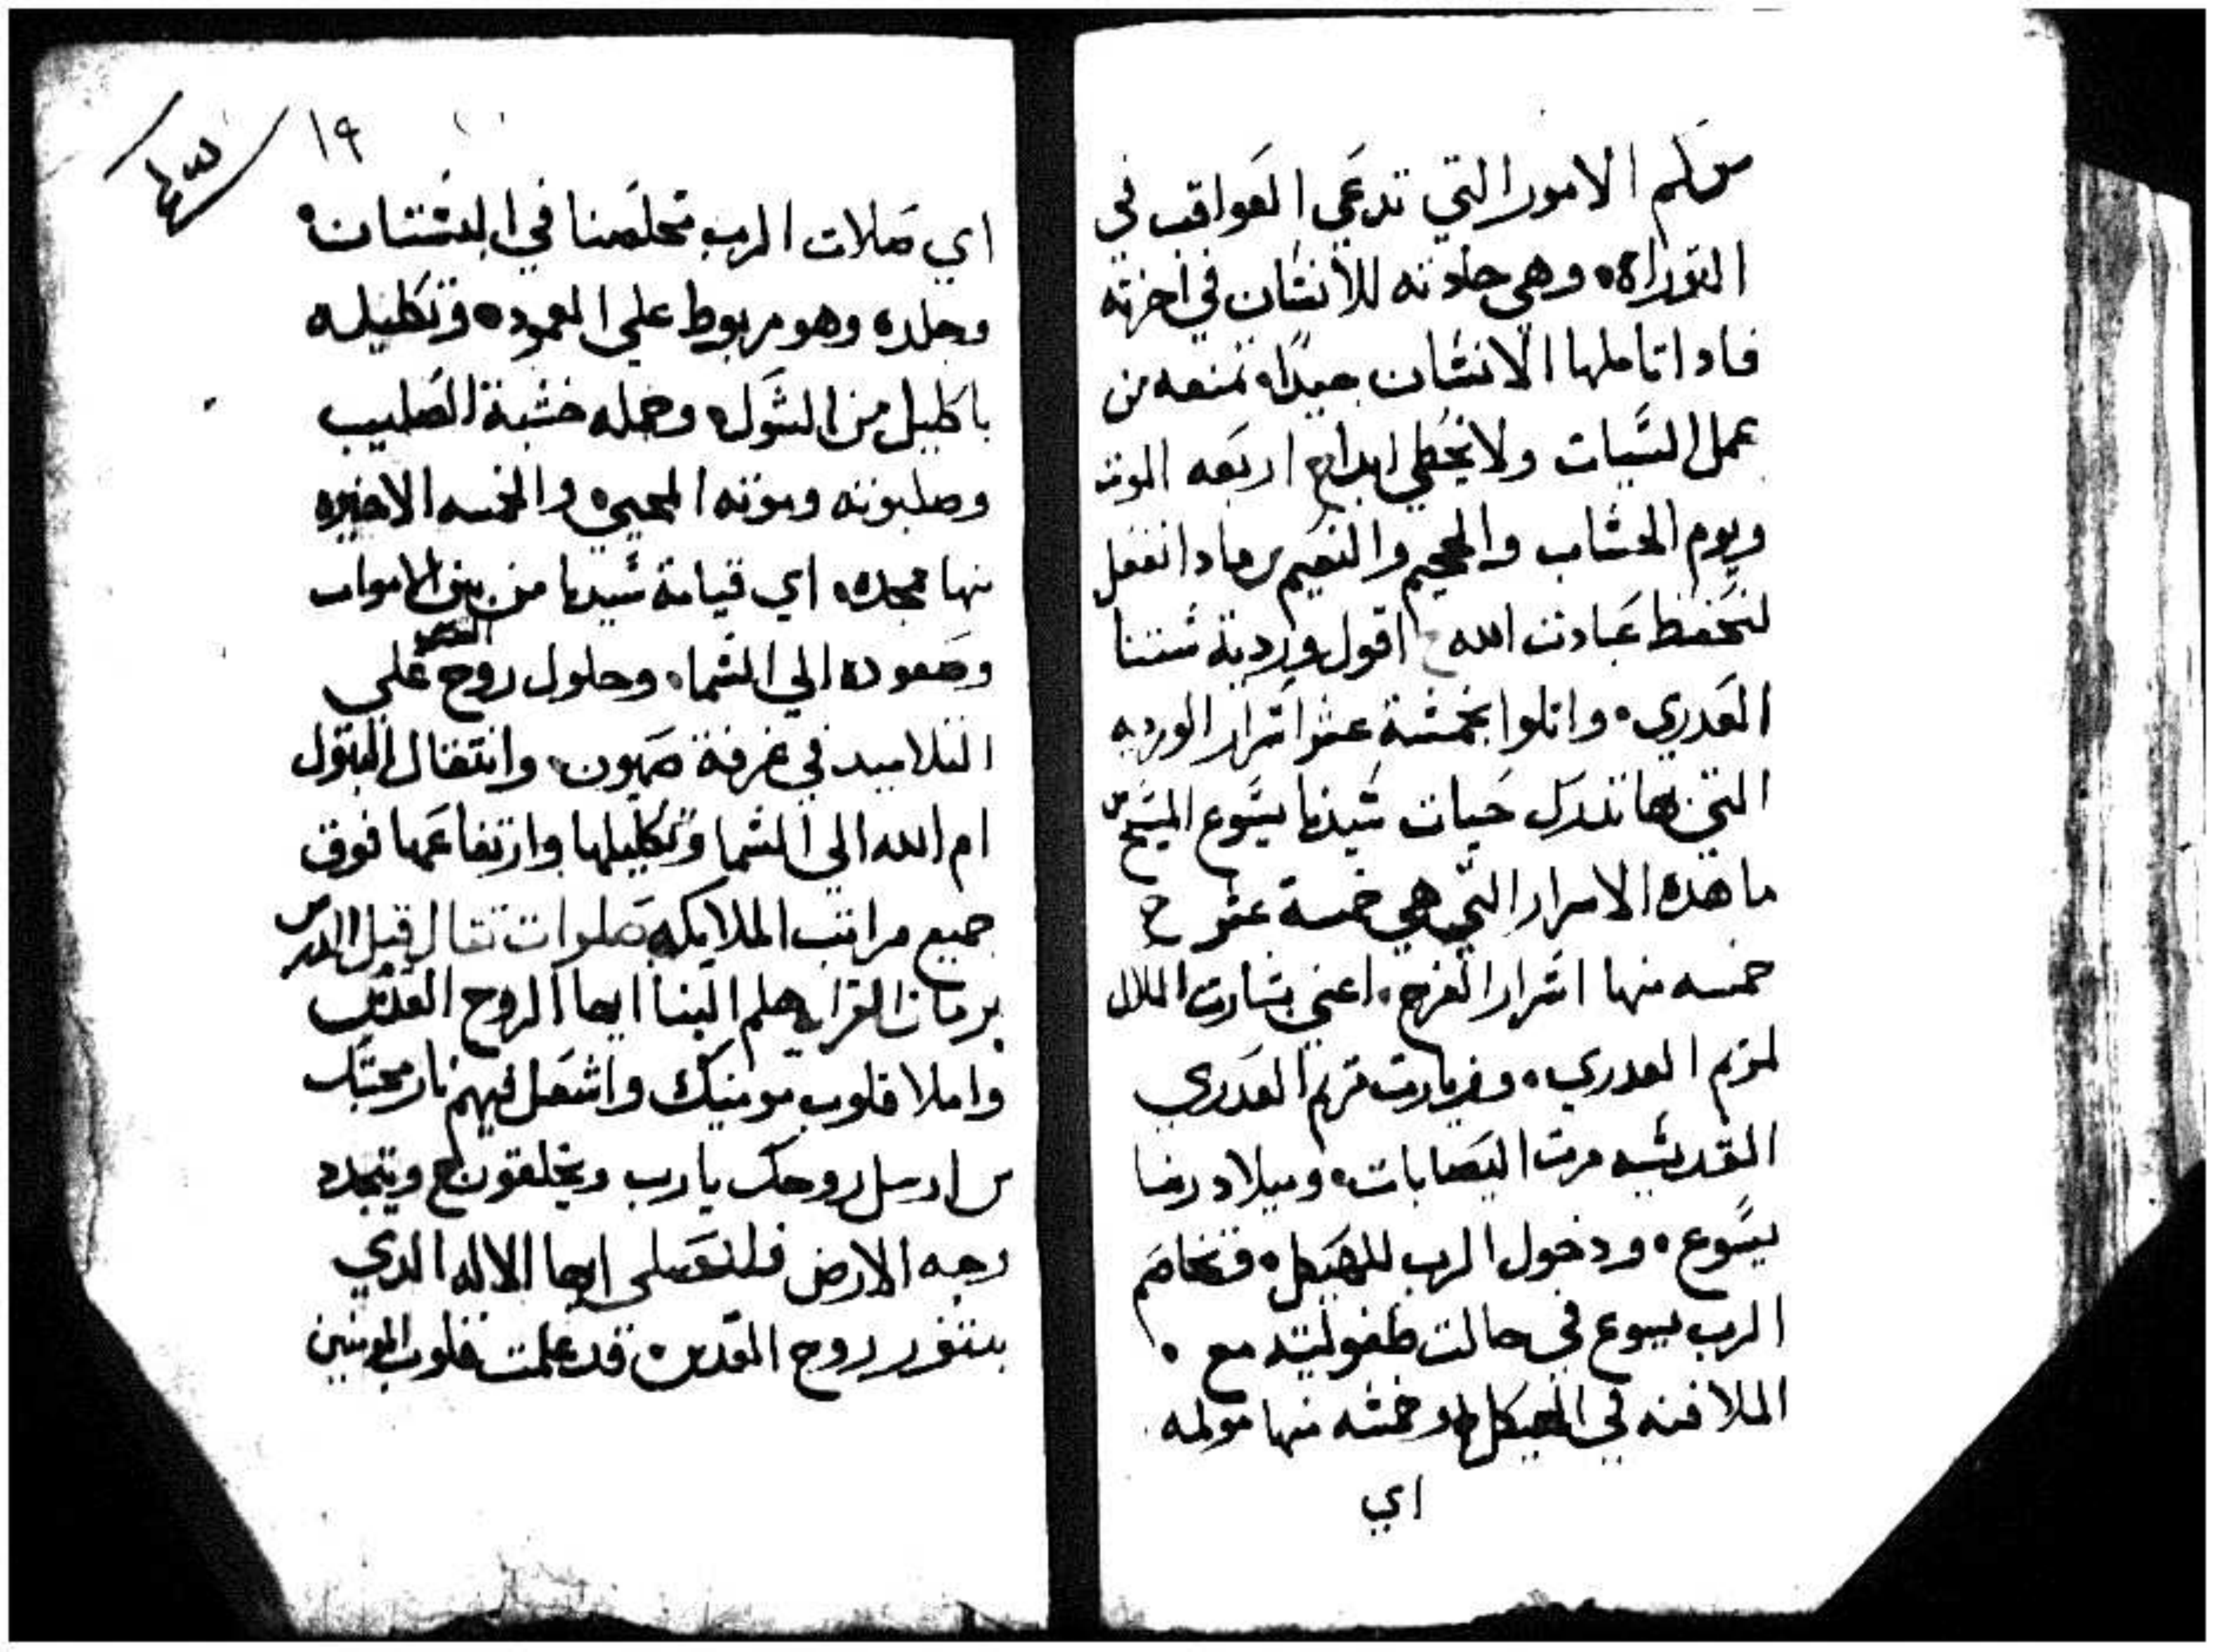 س كم الامور التي تدعي العواقب في
التوراة، وهي حادته للأنسان في اخرته
فادا تاملها الانسان جيدًا، تمنعه من
عمل السيات ولا يخطي ابدا ج اربعه الموت
ويوم الحساب والجحيم والنعيم س مادا نفعل
لنحفظ عبادت الله ج اقول وردية ستنا
العدري، واتلوا بخمسة عشر اسرار الورديه
التي بها تدكر حيات سيدنا يسوع المسيح س
ما هده الاسرار التي هي خمسة عشر ج
خمسه منها اسرار الفرح، اعني بشارت الملاك
لمريم العدري، وزيارت مريم العدري
القديسه مرت اليصابات، وميلاد ربنا
يسوع، ودخول الرب للهيكل، وتخاصم
الرب يسوع في حالت طفوليته مع
الملافنه في الهيكل، وخمسه منها مولمه
اي
١٩
اي صلات الرب مخلصنا في البستان،
وجلده وهو مربوط علي العمود، وتكليله
باكليل من الشوك، وحمله خشبة الصليب
وصلبوته وموته المحيي، والخمسه الاخيره
منها مجده، اي قيامة سيدنا من بين الاموات
وصعوده الي السما، وحلول روح القدس علي
التلاميد في غرفة صهيون، وانتقال البتول
ام الله الي السما وتكليلها وارتفاعها فوق
جميع مراتب الملايكه صلوات تقال قبل الدرس
برمان القراه هلم الينا ايها الروح القدس
واملا قلوب مومنيك واشعل فيهم نار محبتك
س ارسل روحك يا رب ويخلقون ج ويتجدد
وجه الارض فلنصلي ايها الاله الدي
بتنور روح القدس، قد علمت قلوب المومنين